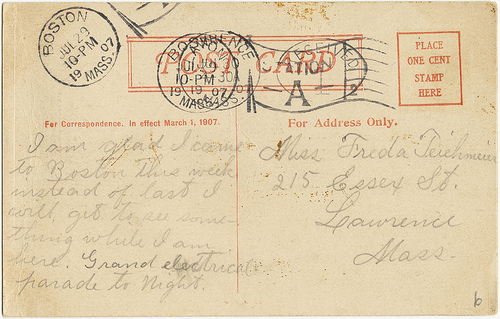 BOSTON
JUL 29
10-PM
19 07
MASS.
POST CARD
RECEIVED
A
2
PLACE
ONE CENT
STAMP
HERE
For Correspondence. In effect March 1, 1907.
For Address Only.
I am glad I came
to Boston this week
instead of last I
will get to see some-
thing while I am
here. Grand electrical
parade to night.
Miss Freda Teichmeier
215 Essex St.
Lawrence
Mass.
6